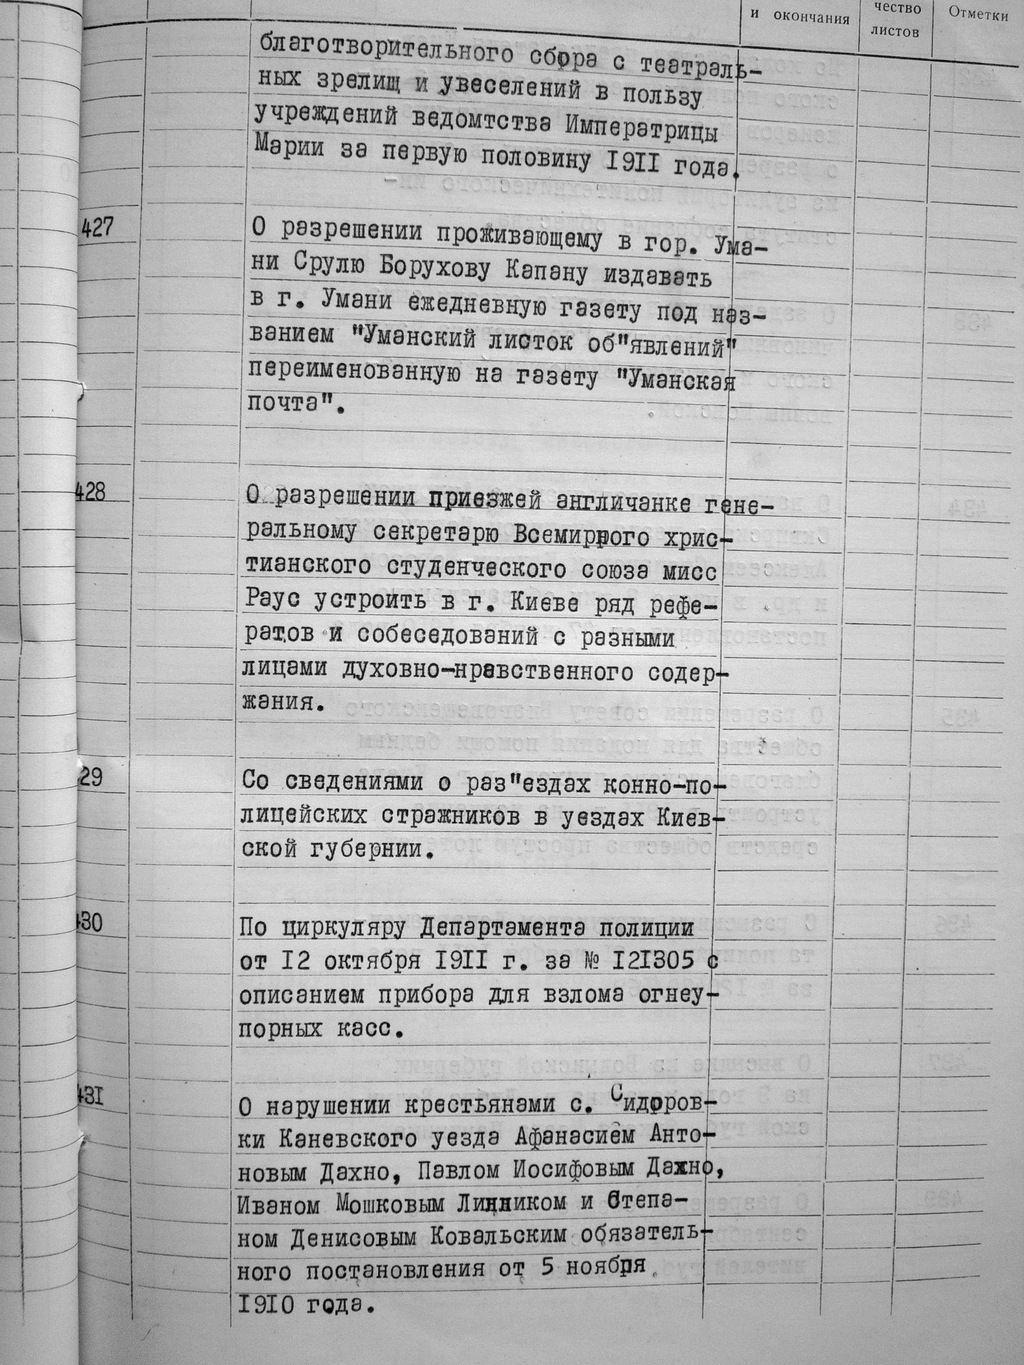 и окончания
чество
листов
Отметки
благотворительного сбора с театраль-
ных зрелищ и увеселений в пользу
учреждений ведомтства Императрицы
Марии за первую половину 1911 года.
427
О разрешении проживающему в гор. Ума-
ни Срулю Борухову Капану издавать
в г. Умани ежедневную газету под наз-
ванием "Уманский листок об"явлений"
переименованную на газету "Уманская
почта".
428
О разрешении приезжей англичанке гене-
ральному секретарю Всемирного хрис-
тианского студенческого союза мисс
Раус устроить в г. Киеве ряд рефе-
ратов и собеседований с разными
лицами духовно-нравственного содер-
жания.
29
Со сведениями о раз"ездах конно-по-
лицейских стражников в уездах Киев-
ской губернии.
430
По циркуляру Департамента полиции
от 12 октября 1911 г. за № 121305 с
описанием прибора для взлома огнеу-
порных касс.
431
О нарушении крестьянами с. Сидоров-
ки Каневского уезда Афанасием Анто-
новым Дахно, Павлом Иосифовым Дахно,
Иваном Мошковым Линником и Степа-
ном Денисовым Ковальским обязатель-
ного постановления от 5 ноября
1910 года.